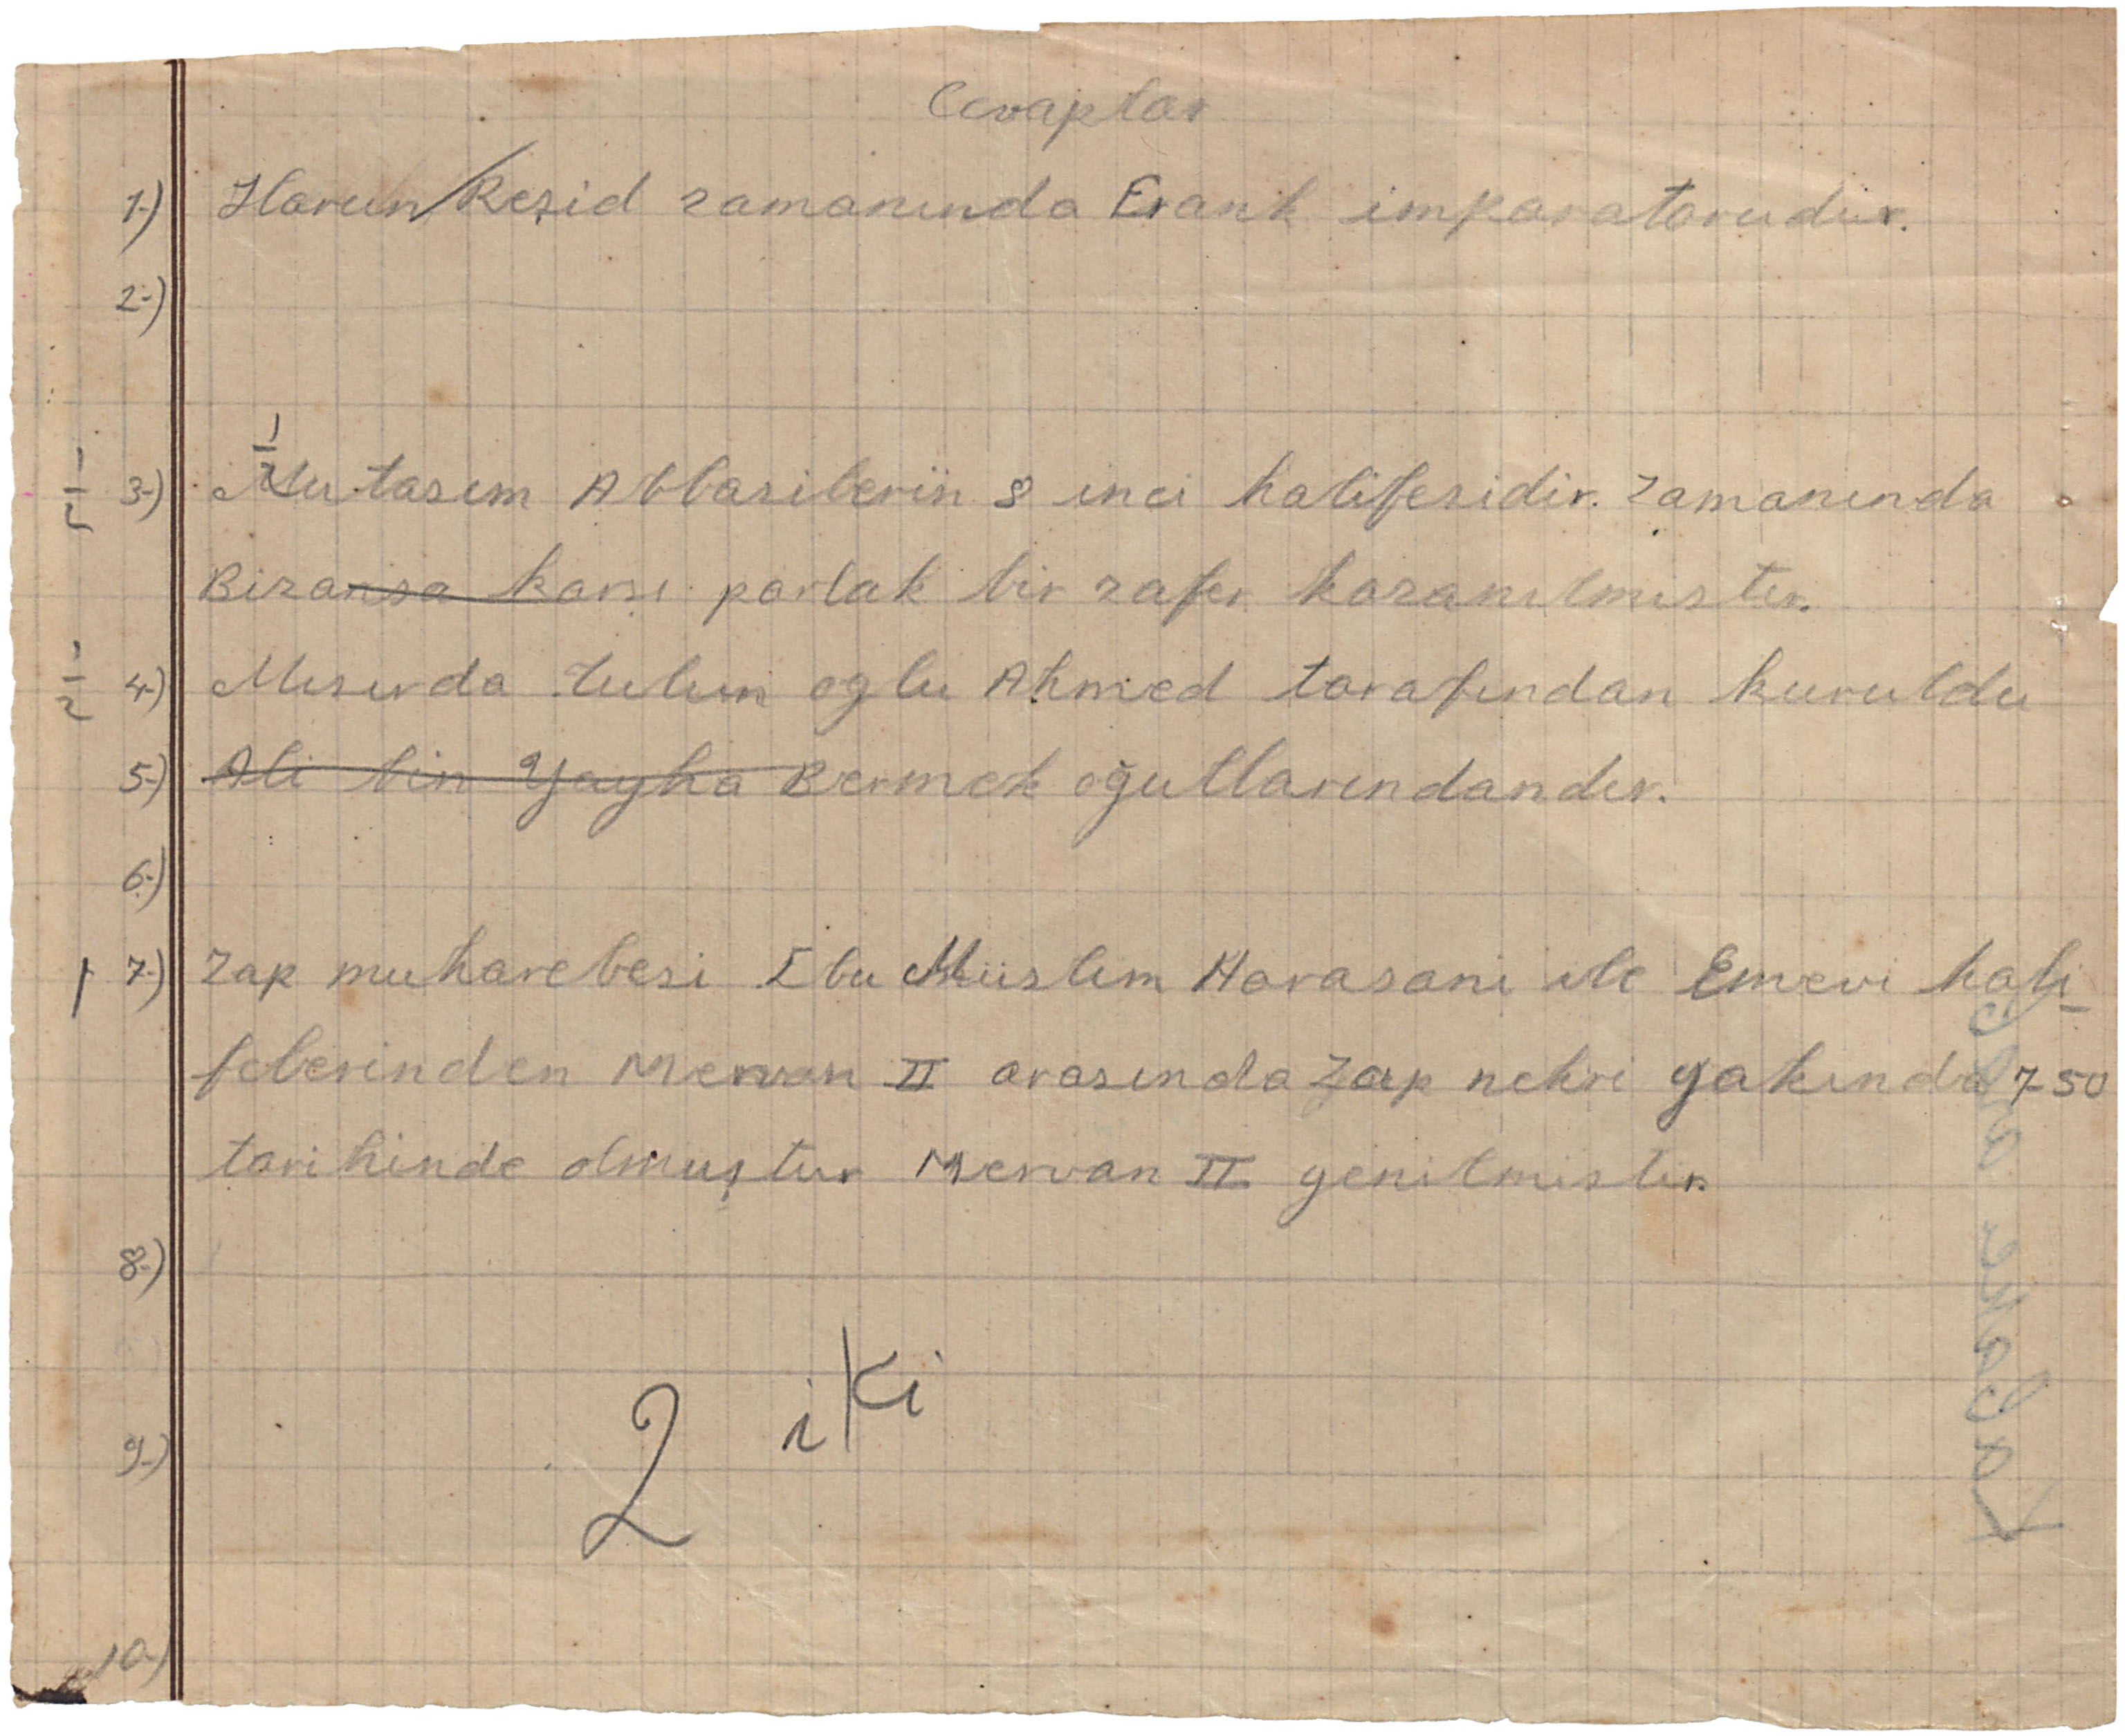 Cevaplar
1-) Harun Reşid zamanında Erank imparatorudur.
2-)
1/2
1/2 3-) Mutasım Abbasilerin 8 inci halifesidir. Zamanında
Bizansa karşı parlak bir zafer kazanılmıştır.
1/2 4-) Mısırda Tulun oglu Ahmed tarafından kuruldu
5-) Ali bin Yayha Bermek oğullarındandır.
6-)
1 7-) Zap muharebesi Ebu Müslim Horasani ile Emevi hali-
felerinden Mervan II arasında Zap nehri yakında 750
tarihinde olmuştur Mervan II yenilmistir.
8-)
2 iki
9-)
10-)